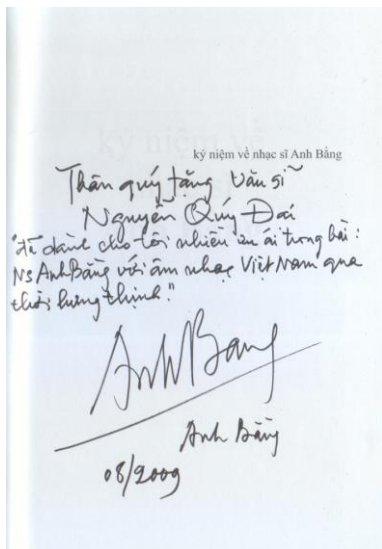 kỷ niệm về nhạc sĩ Anh Bằng
Thân quý tặng Văn sĩ
Nguyễn Quý Đại
"đã dành cho tôi nhiều ưu ái trong bài:
NS Anh Bằng với âm nhạc Việt Nam qua
thời hưng thịnh."
Anh Bang
Anh Bằng
08/2009